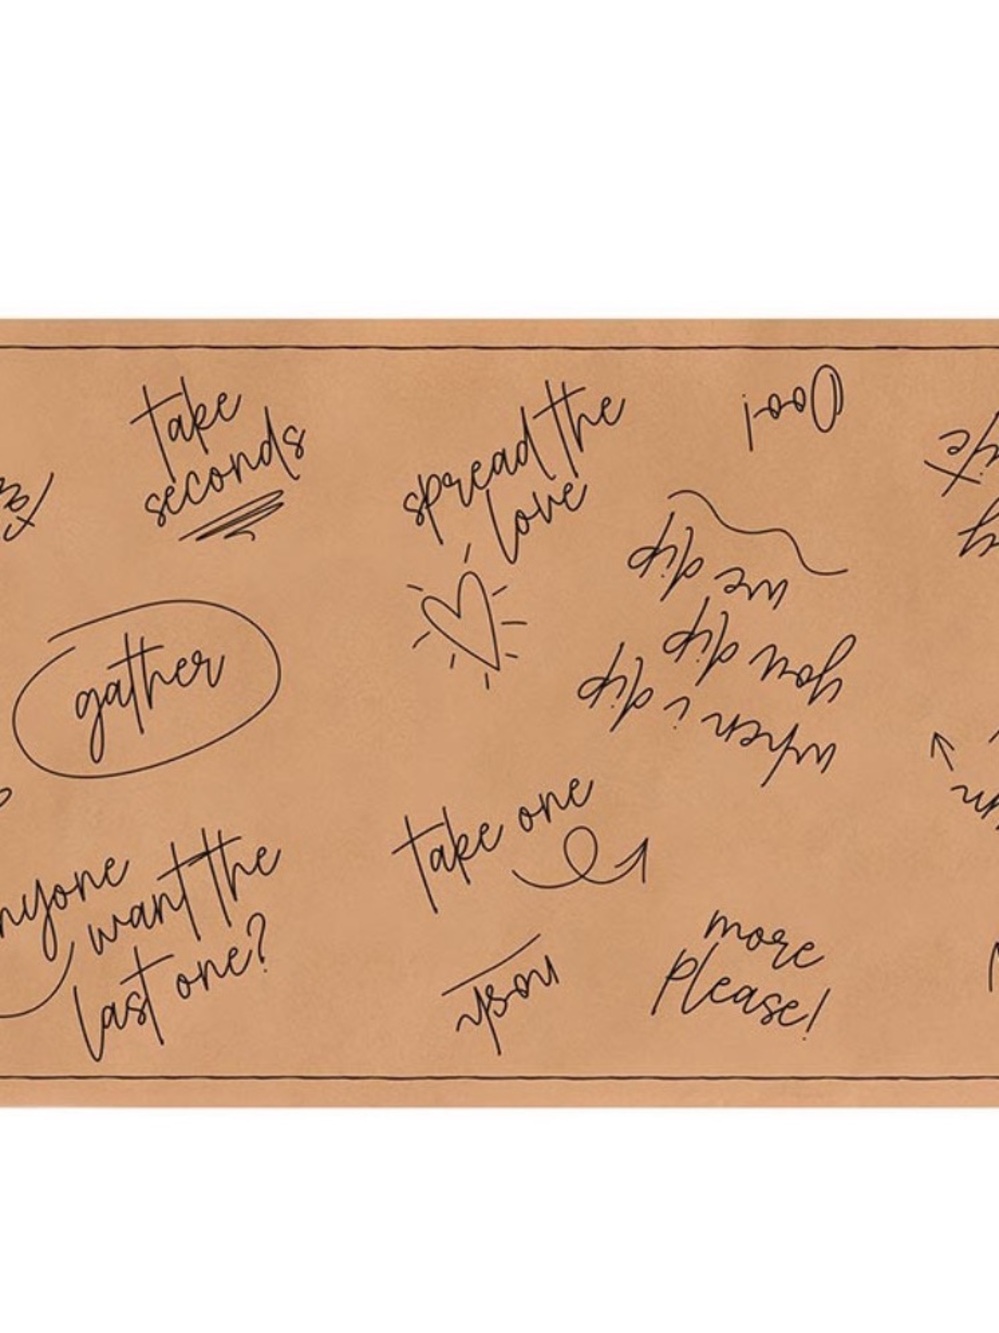 take
seconds
spread the
love
Ooo!
gather
when i dip
you dip
we dip
take one
anyone
want the
last one?
nosh
more
please!